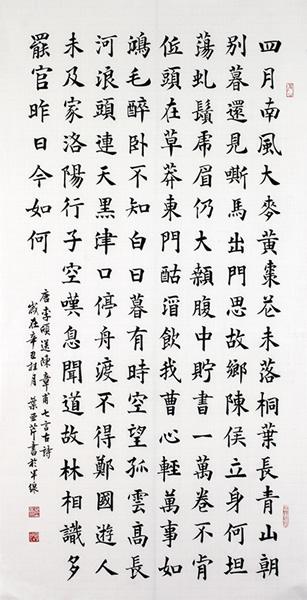 四月南風大麥黃棗花未落桐葉長青山朝
別暮還見嘶馬出門思故鄉陳侯立身何坦
蕩虬鬚虎眉仍大顙腹中貯書一萬卷不肯
低頭在草莽東門酤酒飲我曹心輕萬事如
鴻毛醉卧不知白日暮有時空望孤雲高長
河浪頭連天黑津口停舟渡不得鄭國遊人
未及家洛陽行子空嘆息聞道故林相識多
罷官昨日今如何
唐李頎送陳章甫七言古詩
歲在辛丑桂月 葉亞書於半緣